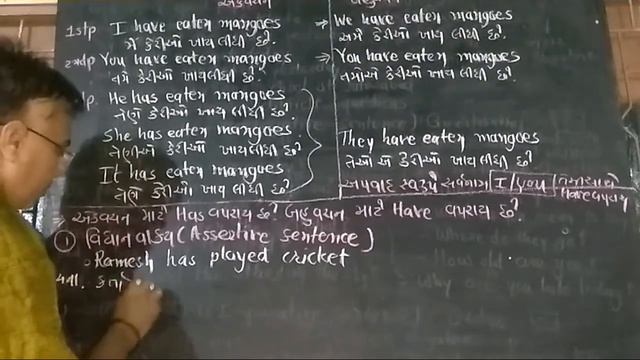 1stp I have eaten mangoes ⇒ We have eaten mangoes
મેં કેરીઓ ખાય લીધી છે. અમે કેરીઓ ખાય લીધી છે.
2ndp You have eaten mangoes ⇒ You have eaten mangoes
તમે કેરીઓ ખાય લીધી છે. તમોએ કેરીઓ ખાય લીધી છે.
p. He has eaten mangoes
તેણે કેરીઓ ખાય લીધી છે.
She has eaten mangoes They have eaten mangoes
તેણીએ કેરીઓ ખાય લીધી છે. તેઓ એ કેરીઓ ખાય લીધી છે
It has eaten mangoes
તેણે કેરીઓ ખાય લીધી છે. અપવાદ સ્વરૂપે સર્વનામ I / you
Have વપરાય
⇒ એકવચન માટે Has વપરાય છે. બહુવચન માટે Have વપરાય છે.
① વિધાન વાક્ય (Assertive sentence)
Ramesh has played cricket
કર્તા